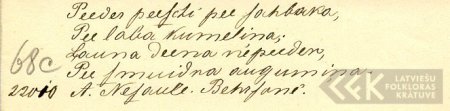 Peedes peeschi pee sahbaka,
Pee laba kumelina;
68c Launa deena nepeeder,
Pee smuidra augumina.
22010 A. Nesaule. Behrsonê.
LATVIEŠU
FOLKLORAS
KRĀTUVE